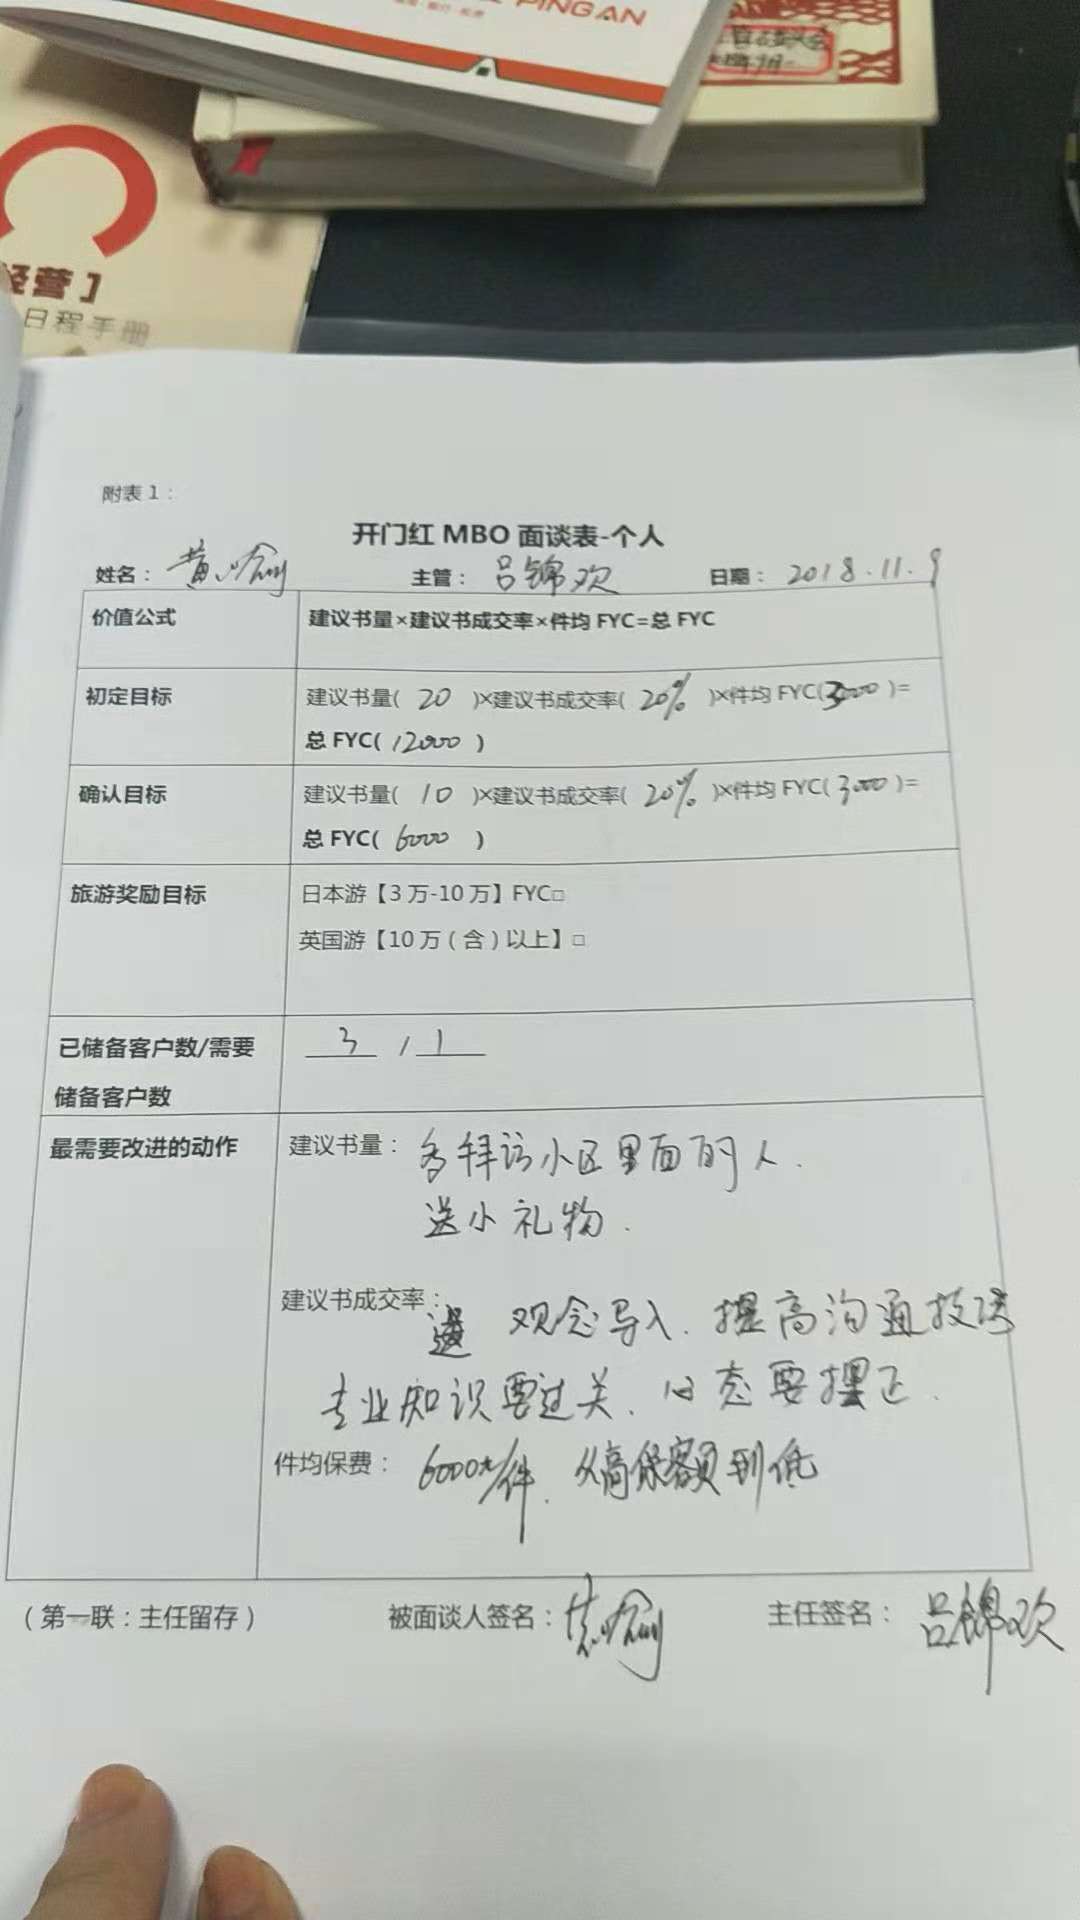 PING AN
经营】
日程手册
附表 1：
开门红 MBO 面谈表-个人
姓名： 黄 主管： 吕锦欢 日期： 2018.11.9
价值公式 建议书量×建议书成交率×件均 FYC=总 FYC
初定目标 建议书量( 20 )×建议书成交率( 20% )×件均 FYC(3000)=
总 FYC( 12000 )
确认目标 建议书量( 10 )×建议书成交率( 20% )×件均 FYC( 3000 )=
总 FYC( 6000 )
旅游奖励目标 日本游【3 万-10 万】FYC□
英国游【10 万（含）以上】□
已储备客户数/需要 3 / 1
储备客户数
最需要改进的动作 建议书量： 多拜访小区里面的人.
送小礼物.
建议书成交率： 观念导入. 提高沟通技巧
专业知识要过关. 心态要摆正.
件均保费： 6000元/件. 从高保额到低
（第一联：主任留存） 被面谈人签名： 主任签名： 吕锦欢